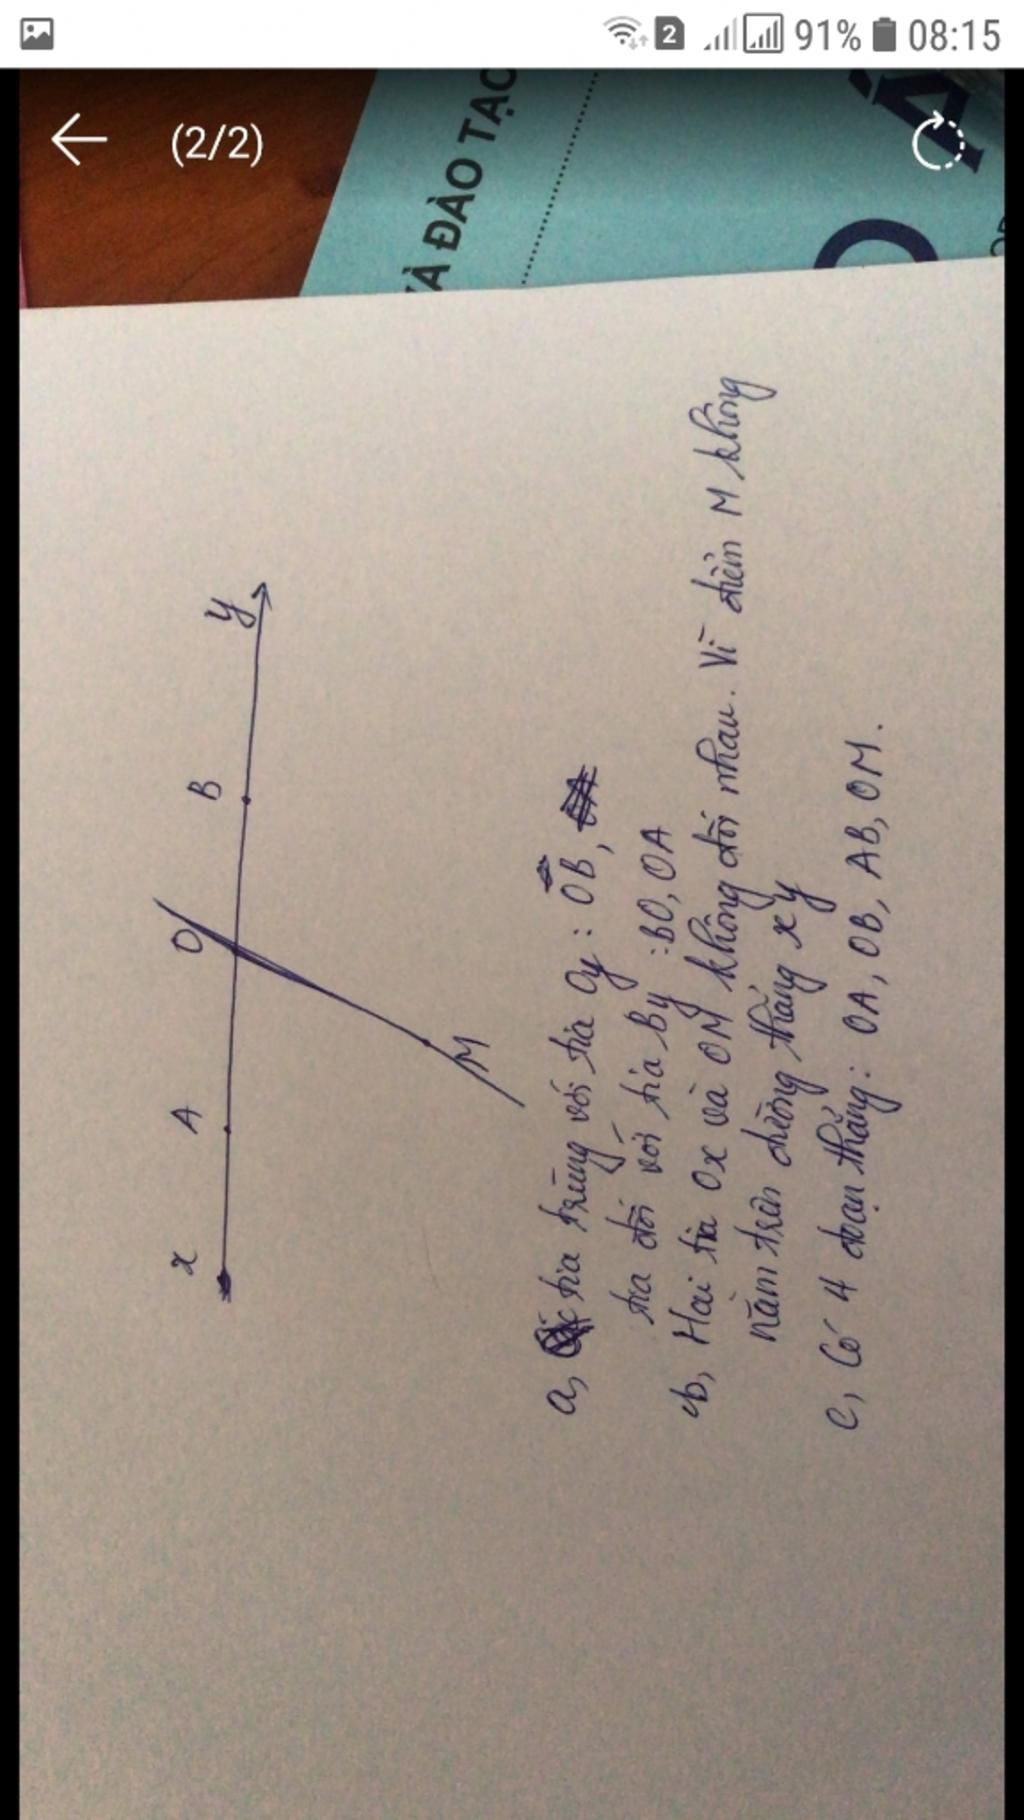 2 91% 08:15
(2/2)
VÀ ĐÀO TẠO
x A O B y
M
a, tia trùng với tia Oy: OB,
tia đối với tia By :BO, OA
b, Hai tia Ox và OM không đối nhau. Vì điểm M không
nằm trên đường thẳng xy
c, Có 4 đoạn thẳng: OA, OB, AB, OM.